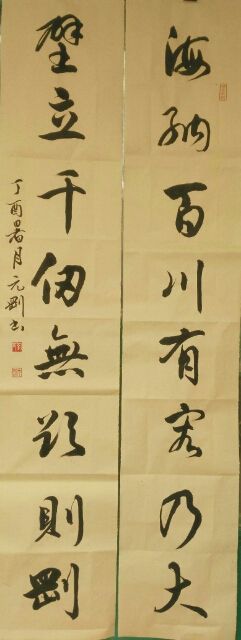 海納百川有容乃大
壁立千仞無欲則剛
丁酉暑月元剛书